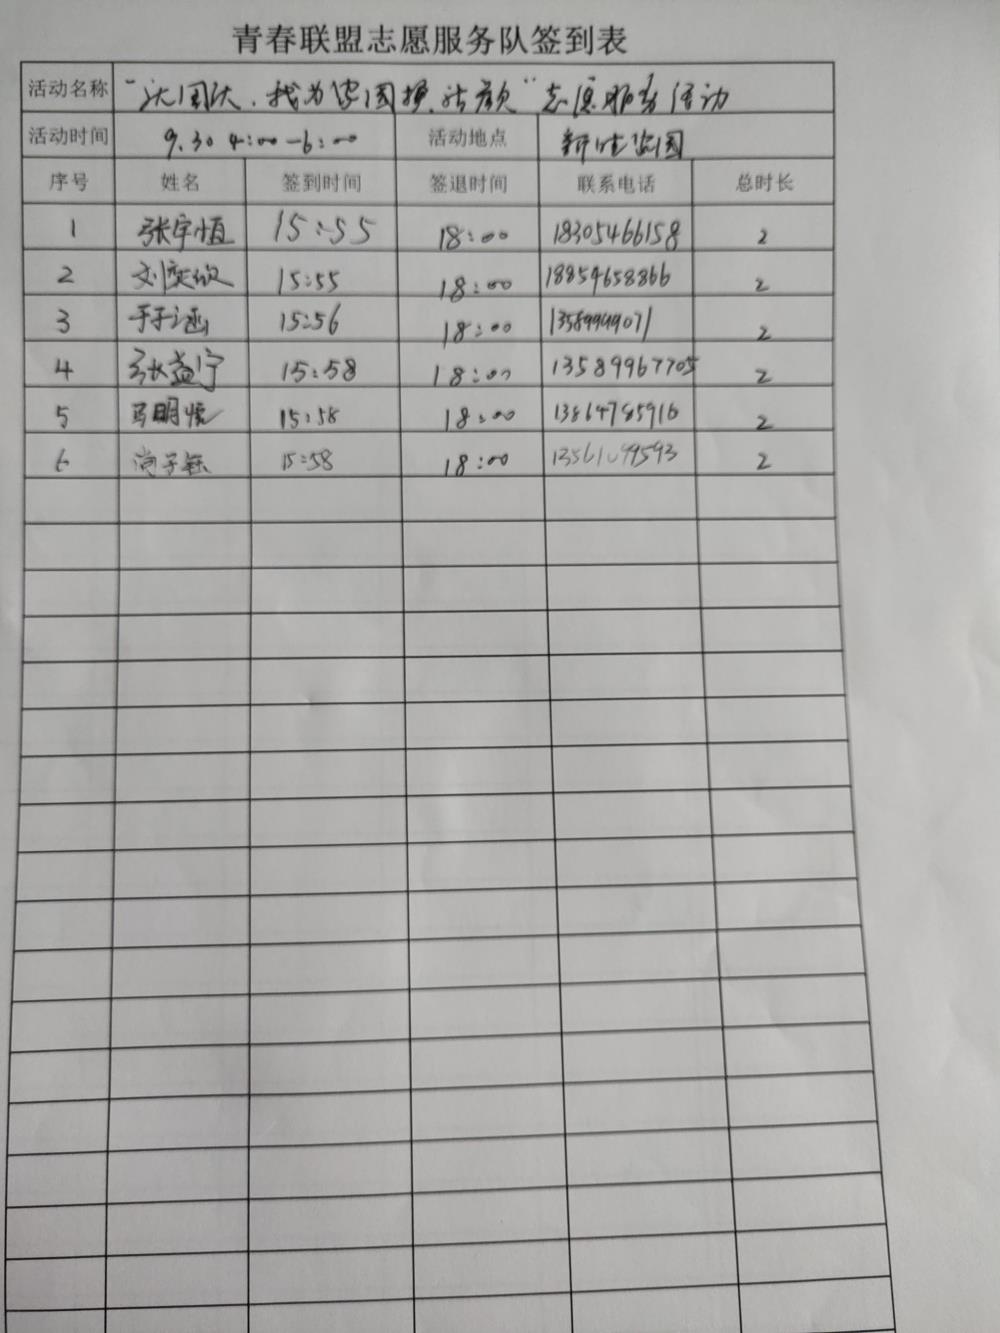 青春联盟志愿服务队签到表
活动名称 “ 国庆,我为 园换 颜”志愿服务活动
活动时间 9.30 4:00-6:00 活动地点 新 园
序号 姓名 签到时间 签退时间 联系电话 总时长
1 张宇恒 15:55 18:00 18305466158 2
2 刘奕欣 15:55 18:00 18854658866 2
3 于子涵 15:56 18:00 2
4 张益宁 15:58 18:00 13589967705 2
5 马明悦 15:58 18:00 13864785916 2
6 尚子钰 15:58 18:00 2